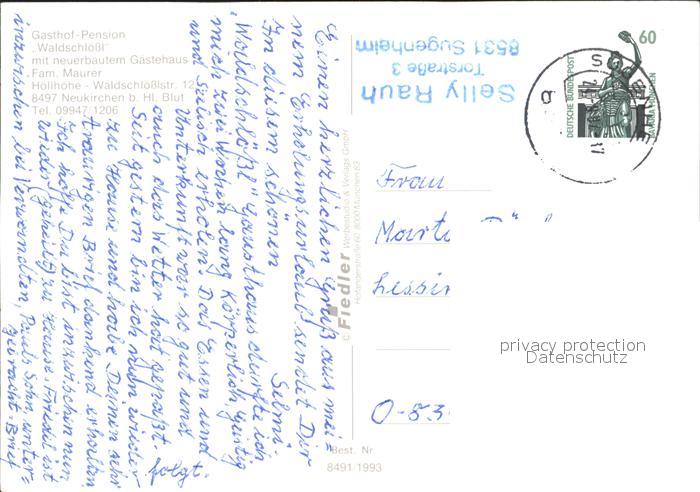 Gasthof-Pension
„Waldschlößl"
mit neuerbautem Gästehaus
Fam. Maurer
Höllhöhe - Waldschlößlstr. 12
8497 Neukirchen b. Hl. Blut
Tel. 09947/1206
Einen herzlichen Gruß aus mei=
nem Erholungsurlaub sendet Dir
Selmi.
In diesem schönen
„Waldschlößl" Gasthaus durfte ich
mich zwei Wochen lang Körperlich, Geistig
und Seelisch erholen. Das Essen und
Unterkunft war so gut und
auch das Wetter hat gepaßt.
Seit gestern bin ich nun wieder
zu Hause und habe Deinen sehr
traurigen Brief dankend erhalten.
Ich hoffe Du bist inzwischen nun
wieder (geheilt) zu Hause. Friedel ist
inzwischen bei Verwandten, Pauls Sohn, unter=
gebracht. Brief
folgt.
© Fiedler Werbefoto & Verlags GmbH
8000 München 83
Best. Nr.
8491/1993
Selly Rauh
Torstraße 3
8531 Sugenheim
60
DEUTSCHE BUNDESPOST
BAVARIA MÜNCHEN
Frau
O-83
privacy protection
Datenschutz